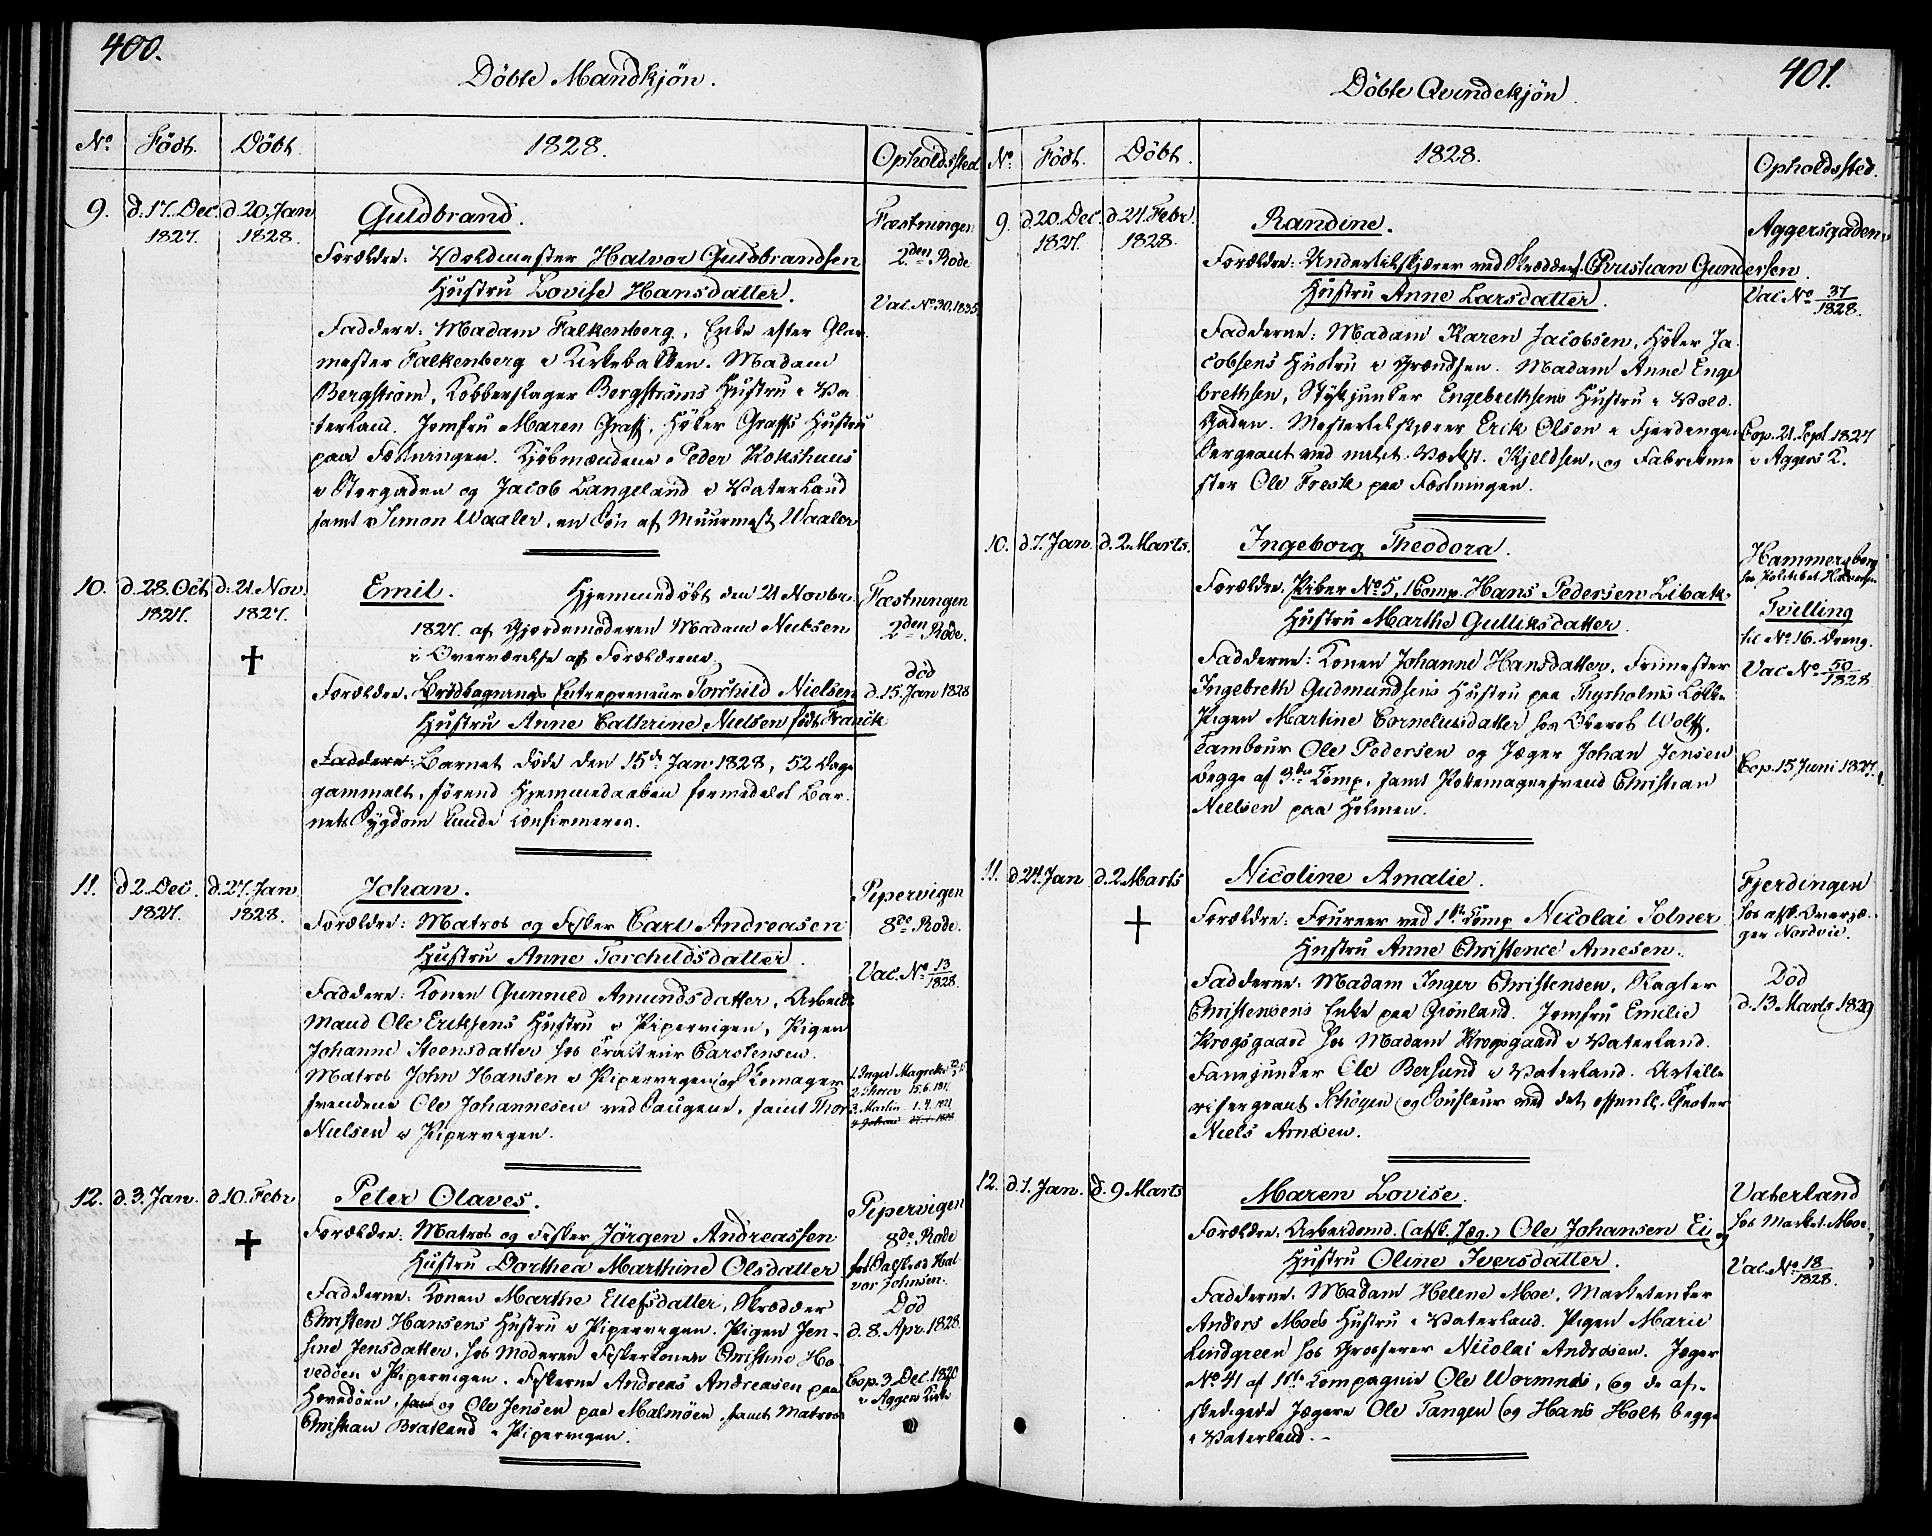 400.
Döbte Mandkjøn.
No Födt. Döbt. 1828. Opholdssted
9. d. 17. Dec. 1827. d. 20. Jan. 1828.
Guldbrand.
Forældre: Voldmester Halvor Guldbrandsen
Hustru Lovise Hansdatter.
Faddere: Madam Falkenberg, Enke efter Glar-
mester Falkenberg i Kirkebakken. Madam
Bergström, Kobberslager Bergströms Hustru i Va-
terland. Jomfru Maren Graff, Höker Graffs Hustru
paa Fæstningen. Kjöbmændene Peder Kokshuus
i Storgaden og Jacob Langeland i Vaterland
samt Simon Waaler, en Sön af Muurmest. Waaler
Fæstningen
2den Rode
Vac. No 30.1835.
10. d. 28. Oct. 1827. d. 21. Nov. 1827. †
Emil. Hjemmedöbt den 21 Novbr
1827. af Gjordemoderen Madam Nielsen
i Overværelse af Forældrene
Forældre: Brödbagnings Entrepreneur Torchild Nielsen
Hustru Anne Cathrine Nielsen födt Franck
Faddere: Barnet döde den 15de Jan. 1828, 52 Dage
gammelt, førend Hjemmedaaben formedelst Bar-
nets Sygdom kunde confirmeres.
Fæstningen
2den Rode.
död
d. 15. Jan 1828
11. d. 2. Dec. 1827. d. 27. Jan. 1828.
Johan.
Forældre: Matros og Fisker Carl Andreasen
Hustru Anne Torchildsdatter.
Faddere: Konen Gunnild Amundsdatter, Arbeids-
mand Ole Eriksens Hustru i Pipervigen, Pigen
Johanne Steensdatter hos Tracteur Carstensen.
Matros John Hansen i Pipervigen og Skomager-
svendene Ole Johannesen ved Saugene, samt Thor
Nielsen i Pipervigen.
Pipervigen
8de Rode.
Vac. No 13/1828.
12. d. 3. Jan. d. 10. Febr †
Peter Olaves.
Forældre: Matros og Fisker Jörgen Andreassen
Hustru Dorthea Marthine Olsdatter
Fadderne: Konen Marthe Ellefsdatter, Skrædder
Christen Hansens Hustru i Pipervigen. Pigen Jen-
sine Jensdatter, hos Moderen Fiskerkonen Christine Ho-
vedöen i Pipervigen. Fiskerne Andreas Andreasen paa
Hovedöen, og Ole Jensen paa Malmöen, samt Matros
Christian Bratland i Pipervigen.
Pipervigen
8de Rode
hos Halvor Johnsen.
Död
d. 8. Apr. 1828.
Cop. 3 Dec. 1820
i Aggers Kirke
401.
Döbte Qvindekjön.
No. Födt. Döbt. 1828. Opholdssted.
9. d. 20. Dec. 1827. d. 24. Febr. 1828.
Randine.
Forældre: Undertilskjærer ved Skrædders. Christian Gundersen
Hustru Anne Larsdatter.
Fadderne: Madam Karen Jacobsen, Höker Ja-
cobsens Hustru i Grændsen. Madam Anne Enge-
brethsen, Stykjunker Engebrethsens Hustru i Vold-
gaden. Mestertilskjærer Erik Olsen i Fjerdingen
Sergeant ved milit. Værkst. Kjeldsen, og Fabrikme-
ster Ole Fresk paa Fæstningen.
Aggersgaden.
Vac No 37/1828.
Cop. 21. Sept. 1827
i Aggers K.
10. d. 7. Jan. d. 2. Marts.
Ingeborg Theodora.
Forældre: Piber No 5, 1 Comp. Hans Pedersen Libak-
Hustru Marthe Gulliksdatter.
Fadderne: Konen Johanne Hansdatter, Frimester
Ingebreth Gudmundsens Hustru paa Thyrholms Lökke
Pigen Martine Cornelusdatter hos Oberst Wolff,
Tambour Ole Pedersen og Jæger Johan Jensen
begge af 3die Komp, samt Pottemagersvend Christian
Nielsen paa Holmen.
Hammersborg
Tvilling
til No 16. Dreng.
Vac No 50/1828
Cop. 15 Juni 1827.
11. d. 24. Jan d. 2. Marts †
Nicoline Amalie.
Forældre: Foureer ved 1ste Comp Nicolai Solner
Hustru Anne Christence Arnesen.
Fadderne: Madam Inger Christensen, Slagter
Christensens Enke paa Grönland. Jomfru Emilie
Krogsgaard hos Madam Krogsgaard i Vaterland.
Fanejunker Ole Bersund i Vaterland. Artille-
risergeant Schögen og Soufleur ved det offentl. Theater
Niels Arnesen.
Fjerdingen
hos afsk. Overjæ-
ger Nordvie.
Död
d. 13. Marts 1829
12. d. 1. Jan. d. 9 Marts
Maren Lovise.
Forældre: Arbeidsmd. (afsk. Jæg.) Ole Johansen Ei
Hustru Oline Iversdatter.
Fadderne: Madam Helene Moe, Marketenter
Anders Moes Hustru i Vaterland. Pigen Marie
Lindgreen hos Grosserer Nicolai Andresen. Jæger
No 41 af 1ste Kompagnie Ole Wormnes, og de af-
skedigede Jægere Ole Tangen og Hans Holt begge
i Vaterland.
Vaterland
hos Market. Moe.
Vac. No 18/1828.